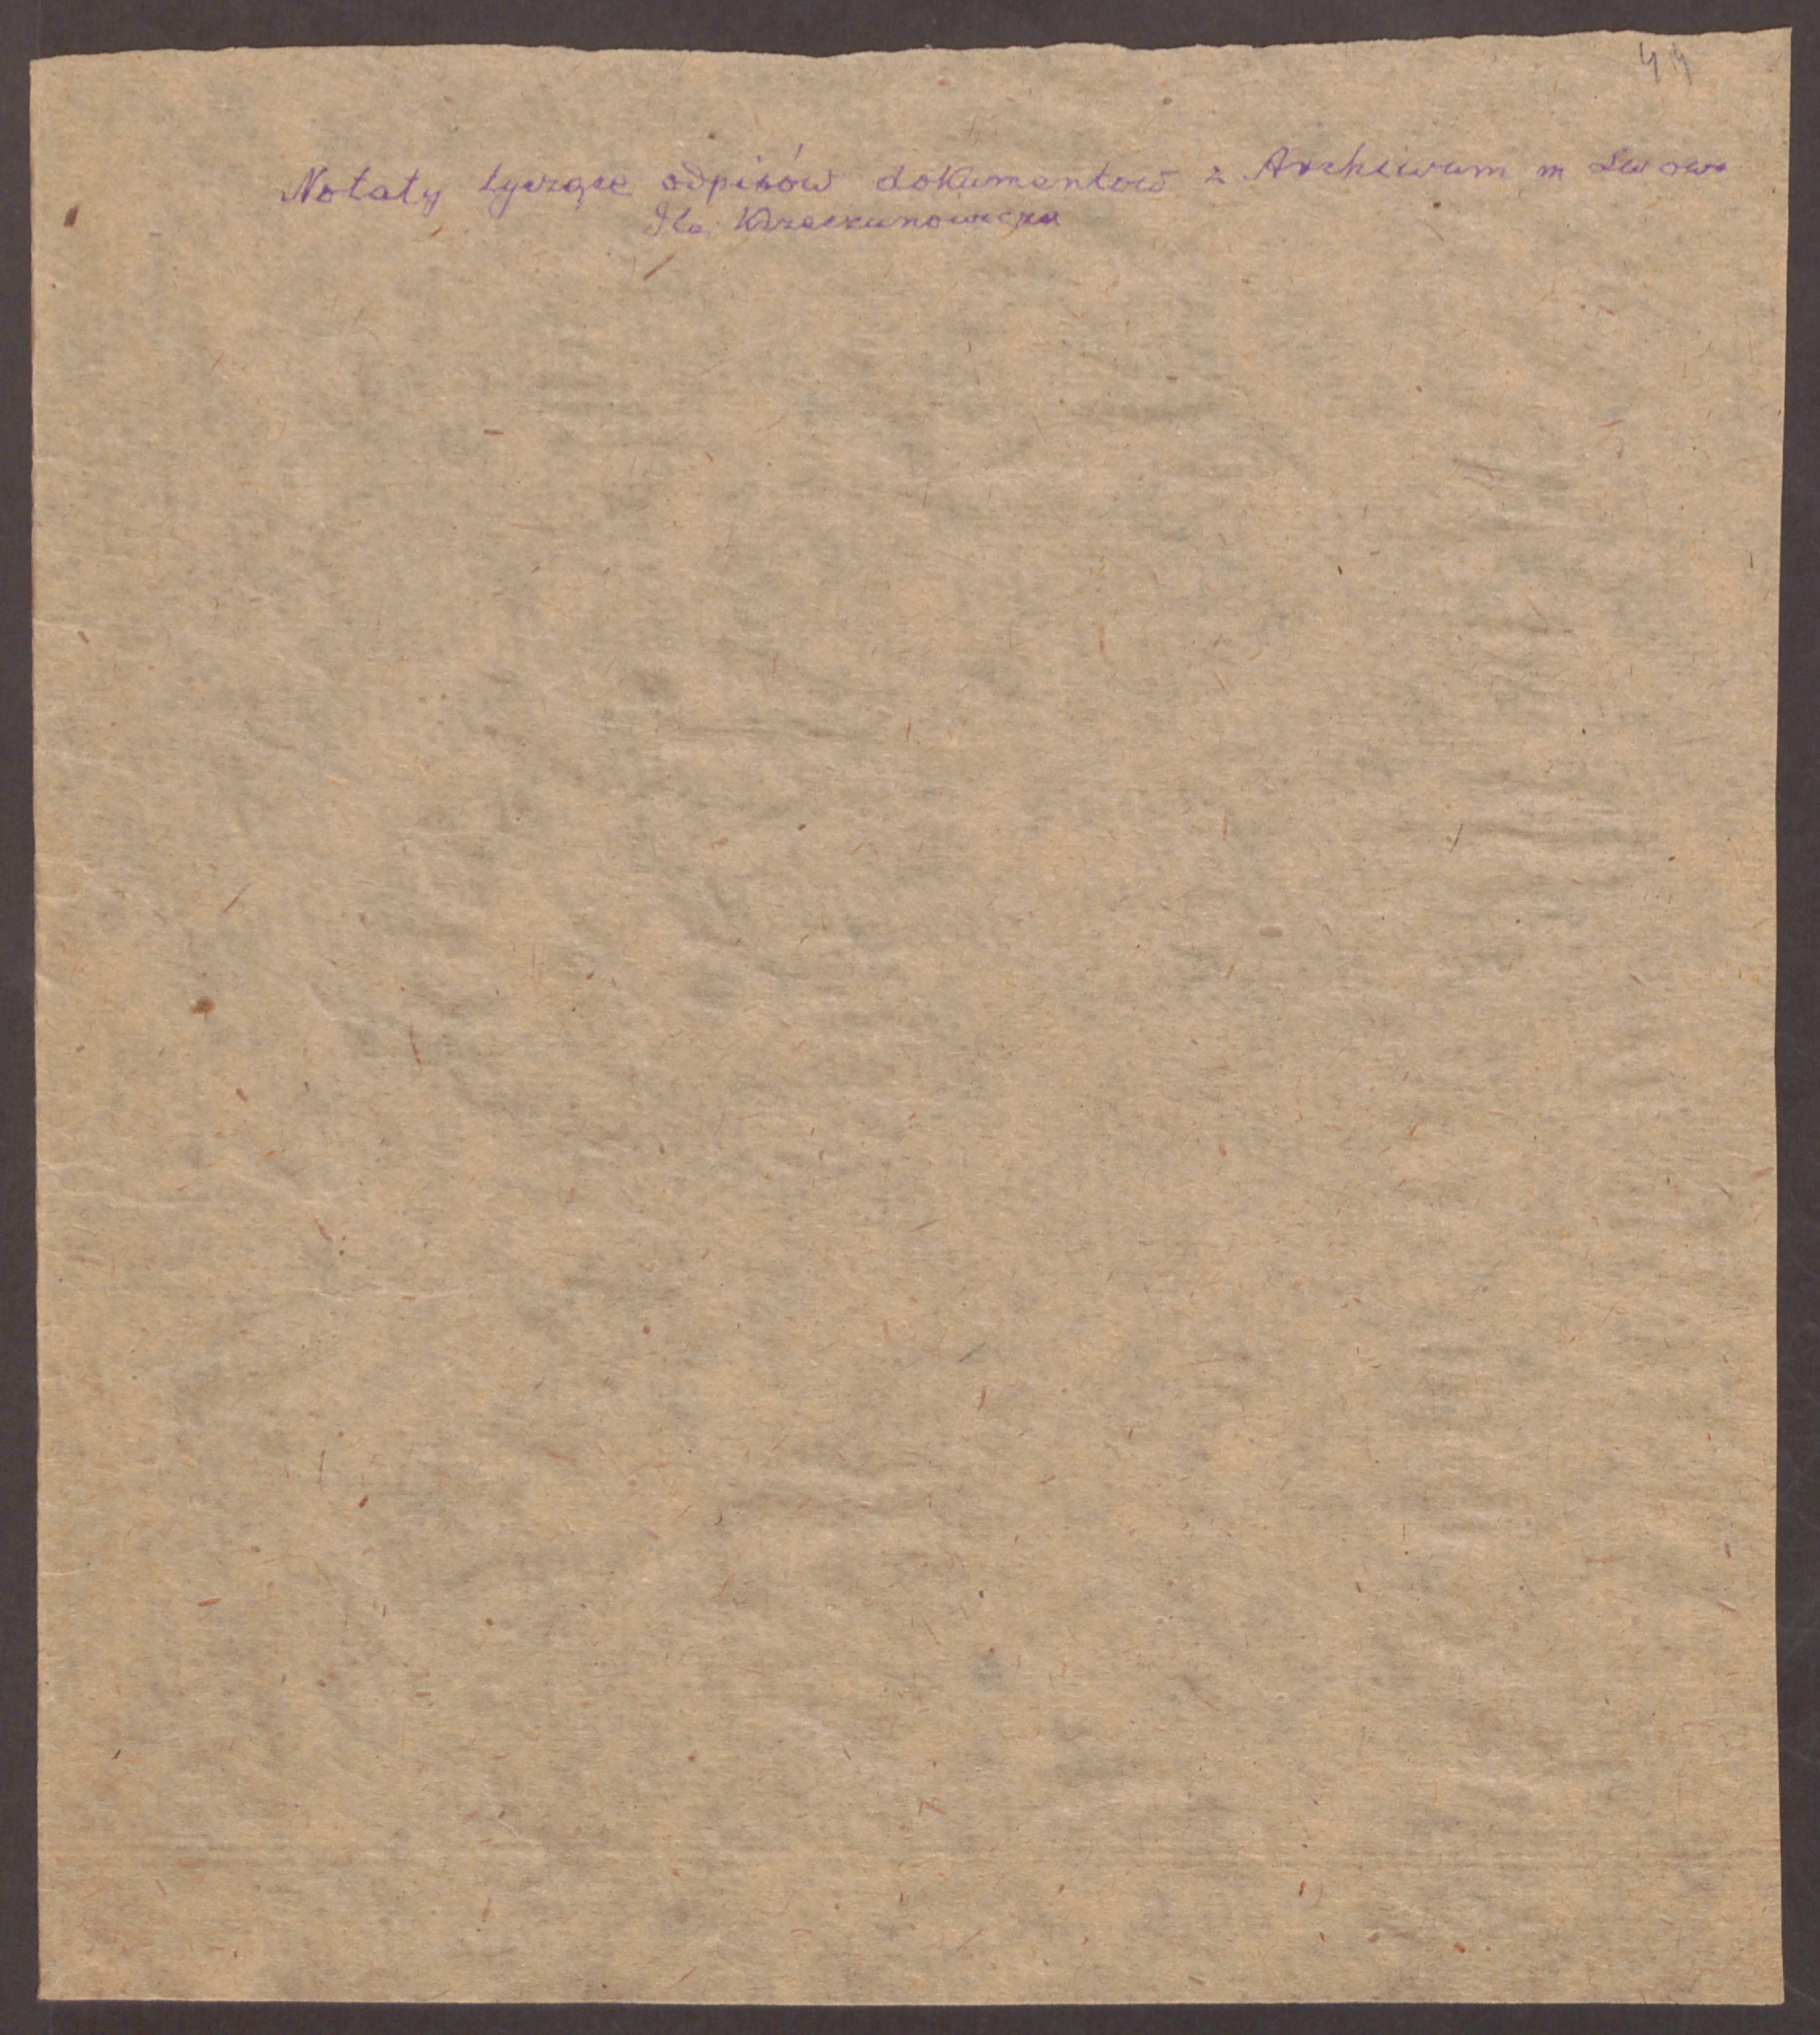 44
Notaty tyczące odpisów dokumentow z Archiwum m Lwowa
dla Krzeczunowicza